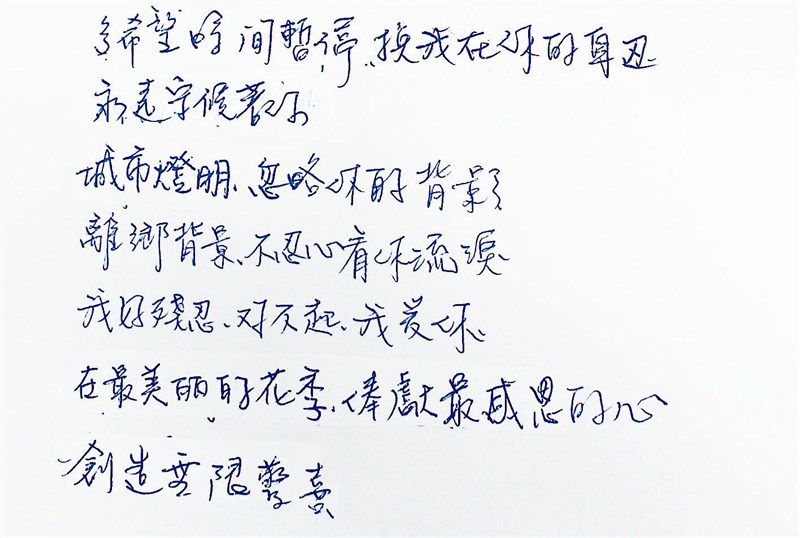 希望時间暫停、換我在你的身边
永遠守候著你
城市燈明、忽略你的背影
離鄉背景、不忍心看你流淚
我好殘忍、对不起、我爱你
在最美丽的花季、俸獻最感恩的心
創造無限驚喜